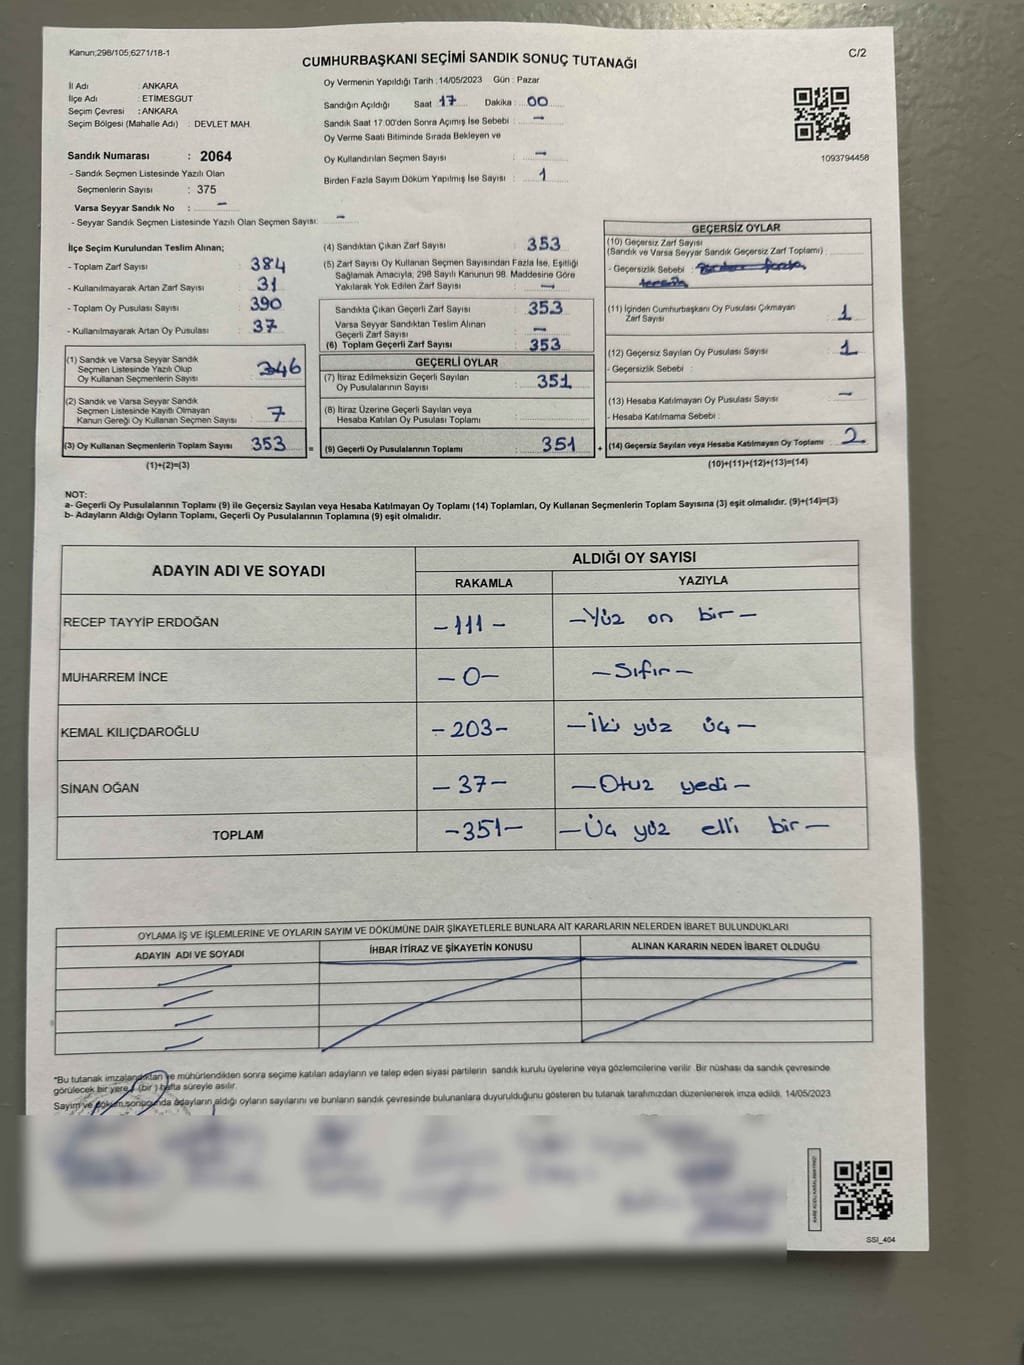 Kanun;298/105;6271/18-1
C/2
CUMHURBAŞKANI SEÇİMİ SANDIK SONUÇ TUTANAĞI
Oy Vermenin Yapıldığı Tarih :14/05/2023 Gün : Pazar
İl Adı : ANKARA
İlçe Adı : ETİMESGUT
Seçim Çevresi : ANKARA
Seçim Bölgesi (Mahalle Adı) : DEVLET MAH.
Sandık Numarası : 2064
- Sandık Seçmen Listesinde Yazılı Olan
Seçmenlerin Sayısı : 375
Varsa Seyyar Sandık No : -
- Seyyar Sandık Seçmen Listesinde Yazılı Olan Seçmen Sayısı: -
Sandığın Açıldığı Saat 17 Dakika : 00
Sandık Saat 17.00'den Sonra Açımış İse Sebebi : -
Oy Verme Saati Bitiminde Sırada Bekleyen ve
Oy Kullandırılan Seçmen Sayısı : -
Birden Fazla Sayım Döküm Yapılmış İse Sayısı : 1
1093794458
İlçe Seçim Kurulundan Teslim Alınan;
- Toplam Zarf Sayısı 384
- Kullanılmayarak Artan Zarf Sayısı 31
- Toplam Oy Pusulası Sayısı 390
- Kullanılmayarak Artan Oy Pusulası 37
(1) Sandık ve Varsa Seyyar Sandık
Seçmen Listesinde Yazılı Olup
Oy Kullanan Seçmenlerin Sayısı 346
(2) Sandık ve Varsa Seyyar Sandık
Seçmen Listesinde Kayıtlı Olmayan
Kanun Gereği Oy Kullanan Seçmen Sayısı 7
(3) Oy Kullanan Seçmenlerin Toplam Sayısı 353
(1)+(2)=(3)
(4) Sandıktan Çıkan Zarf Sayısı : 353
(5) Zarf Sayısı Oy Kullanan Seçmen Sayısından Fazla İse, Eşitliği
Sağlamak Amacıyla, 298 Sayılı Kanunun 98. Maddesine Göre
Yakılarak Yok Edilen Zarf Sayısı : -
Sandıkta Çıkan Geçerli Zarf Sayısı : 353
Varsa Seyyar Sandıktan Teslim Alınan
Geçerli Zarf Sayısı : -
(6) Toplam Geçerli Zarf Sayısı : 353
GEÇERLİ OYLAR
(7) İtiraz Edilmeksizin Geçerli Sayılan
Oy Pusulalarının Sayısı : 351
(8) İtiraz Üzerine Geçerli Sayılan veya
Hesaba Katılan Oy Pusulası Toplamı :
= (9) Geçerli Oy Pusulalarının Toplamı : 351 +
GEÇERSİZ OYLAR
(10) Geçersiz Zarf Sayısı
(Sandık ve Varsa Seyyar Sandık Geçersiz Zarf Toplamı) :
- Geçersizlik Sebebi :
(11) İçinden Cumhurbaşkanı Oy Pusulası Çıkmayan
Zarf Sayısı : 1
(12) Geçersiz Sayılan Oy Pusulası Sayısı : 1
- Geçersizlik Sebebi :
(13) Hesaba Katılmayan Oy Pusulası Sayısı : -
- Hesaba Katılmama Sebebi :
(14) Geçersiz Sayılan veya Hesaba Katılmayan Oy Toplamı : 2
(10)+(11)+(12)+(13)=(14)
NOT:
a- Geçerli Oy Pusulalarının Toplamı (9) ile Geçersiz Sayılan veya Hesaba Katılmayan Oy Toplamı (14) Toplamları, Oy Kullanan Seçmenlerin Toplam Sayısına (3) eşit olmalıdır. (9)+(14)=(3)
b- Adayların Aldığı Oyların Toplamı, Geçerli Oy Pusulalarının Toplamına (9) eşit olmalıdır.
ADAYIN ADI VE SOYADI ALDIĞI OY SAYISI
RAKAMLA YAZIYLA
RECEP TAYYİP ERDOĞAN -111- -Yüz on bir-
MUHARREM İNCE -0- -Sıfır-
KEMAL KILIÇDAROĞLU -203- -İki yüz üç-
SİNAN OĞAN -37- -Otuz yedi-
TOPLAM -351- -Üç yüz elli bir-
OYLAMA İŞ VE İŞLEMLERİNE VE OYLARIN SAYIM VE DÖKÜMÜNE DAİR ŞİKAYETLERLE BUNLARA AİT KARARLARIN NELERDEN İBARET BULUNDUKLARI
ADAYIN ADI VE SOYADI İHBAR İTİRAZ VE ŞİKAYETİN KONUSU ALINAN KARARIN NEDEN İBARET OLDUĞU
*Bu tutanak imzalandıktan ve mühürlendikten sonra seçime katılan adayların ve talep eden siyasi partilerin sandık kurulu üyelerine veya gözlemcilerine verilir. Bir nüshası da sandık çevresinde
görülecek bir yere 1 (bir ) hafta süreyle asılır.
Sayım ve döküm sonucunda adayların aldığı oyların sayılarını ve bunların sandık çevresinde bulunanlara duyurulduğunu gösteren bu tutanak tarafımızdan düzenlenerek imza edildi. 14/05/2023
SSI_404